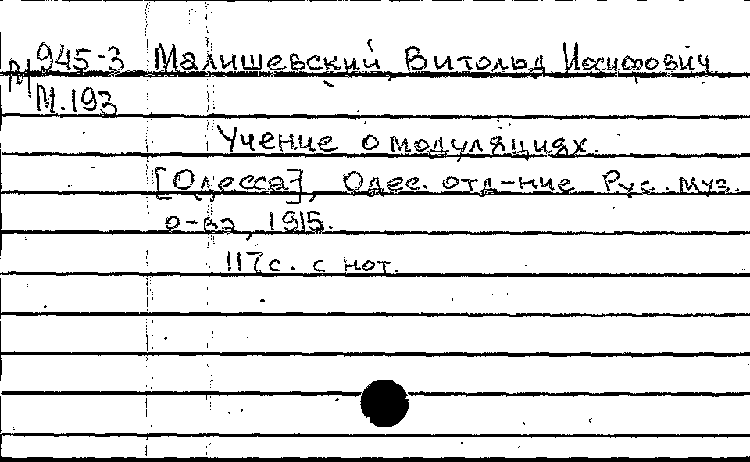 М 945-3 Малишевский, Витольд Иосифович
М.193
Учение о модуляциях.
[Одесса], Одес. отд-ние Рус. муз.
о-ва, 1915.
117с. с нот.